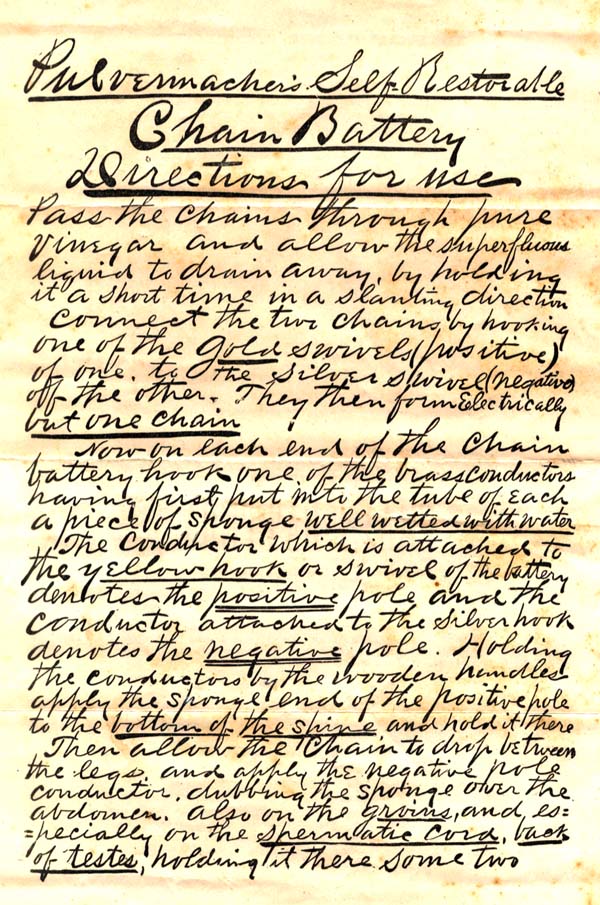 Pulvermacher's Self-Restorable
Chain Battery
Directions for use
Pass the chains through pure
vinegar and allow the superfluous
liquid to drain away, by holding
it a short time in a slanting direction
Connect the two chains, by hooking
one of the Gold swivels (positive)
of one. to the Silver swivel (negative)
off the other. They then form Electrically
but one chain
Now on each end of the Chain
battery hook one of the brass conductors
having first put into the tube of Each
a piece of sponge well wetted with water
The Conductor which is attached to
the yellow hook or swivel of the battery
denotes the positive pole and the
conductor attached to the silver hook
denotes the negative pole. Holding
the conductors by the wooden handles
apply the sponge end of the positive pole
to the bottom of the spine, and hold it there
Then allow the Chain to drop between
the legs, and apply the negative pole
conductor, dubbing the sponge over the
abdomen. also on the groins, and es=
=pecially on the spermatic cord, back
of testes, holding it there some two